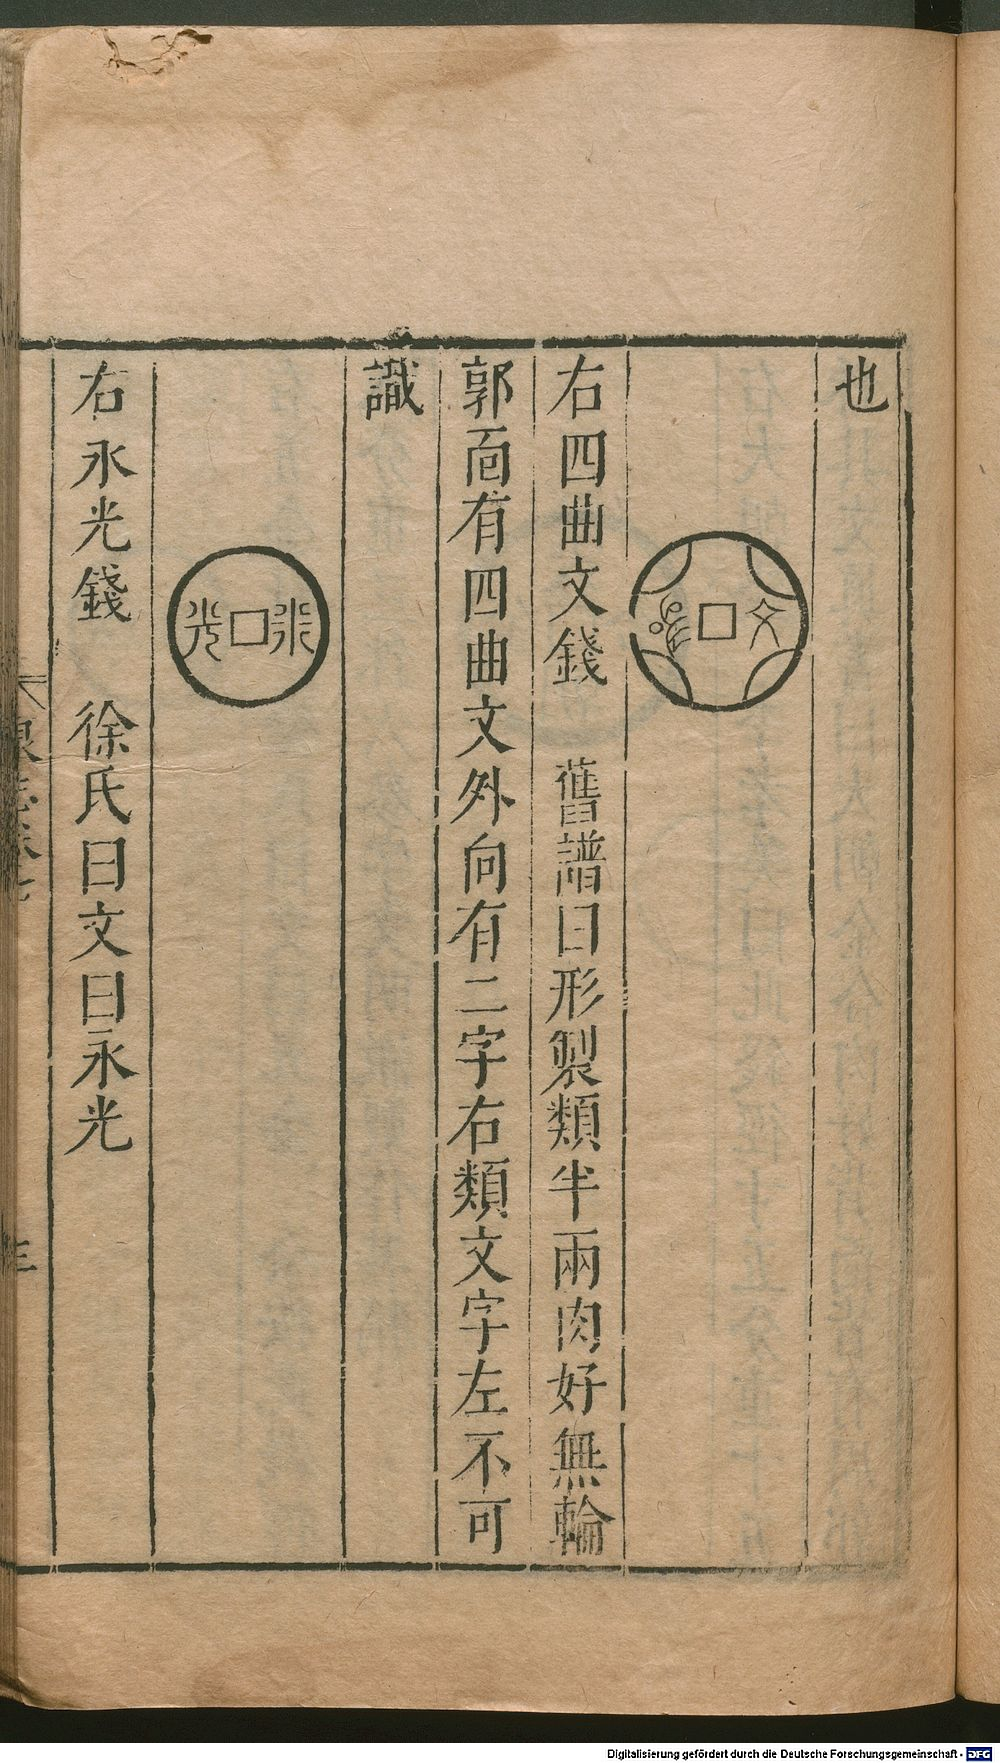 也
文
右四曲文錢　舊譜曰形製類半兩肉好無輪
郭面有四曲文外向有二字右類文字左不可
識
永光
右永光錢　徐氏曰文曰永光
泉志卷七
三
Digitalisierung gefördert durch die Deutsche Forschungsgemeinschaft - DFG